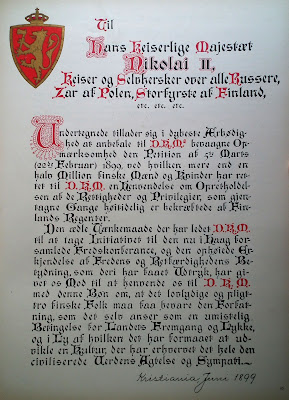 Til
Hans Keiserlige Majestæt
Nikolai II,
Keiser og Selvhersker over alle Russere,
Zar af Polen, Storfyrste af Finland,
etc. etc. etc.
Undertegnede tillader sig i dybeste Ærbødig-
hed at anbefale til D.K.M.s bevaagne Op-
mærksomhed den Petition af 5te Marts
(22de Februar) 1899, ved hvilken mere end en
halv Million finske Mænd og Kvinder har ret-
tet til D.K.M. en Henvendelse om Opretholdel-
sen af de Rettigheder og Privilegier, som gjen-
tagne Gange høitidelig er bekræftede af Fin-
lands Regenter.
Den ædle Tænkemaade der har ledet D.K.M.
til at tage Initiativet til den nu i Haag for-
samlede Fredskonferance, og den ophøiede Er-
kjendelse af Fredens og Retfærdighedens Be-
tydning, som deri har faaet Udtryk, har gi-
vet os Mod til at henvende os til D.K.M.
med denne Bøn om, at det lovlydige og pligt-
tro finske Folk maa faa bevare den Forfat-
ning, som det selv anser som en umistelig
Betingelse for Landets Fremgang og Lykke,
og i Ly af hvilken det har formaaet at ud-
vikle en Kultur, der har erhvervet det hele den
civiliserede Verdens Agtelse og Sympati.
Kristiania Juni 1899